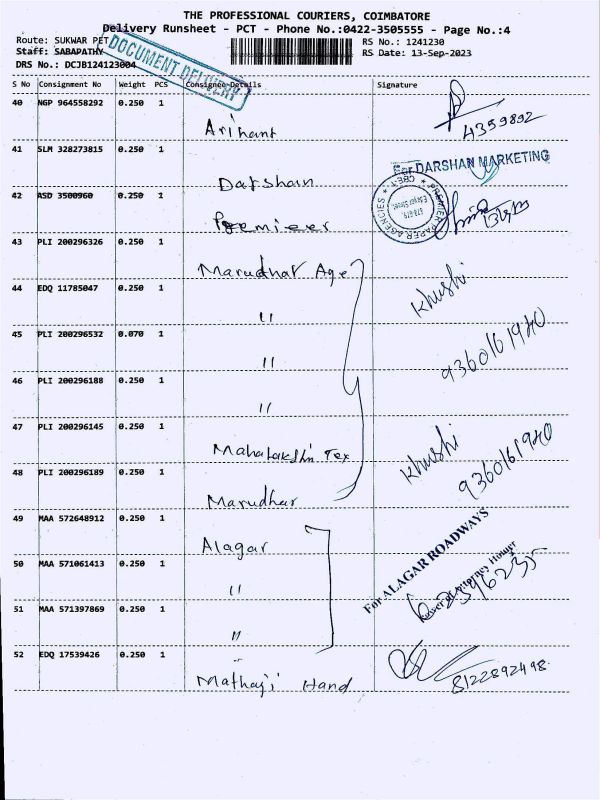 THE PROFESSIONAL COURIERS, COIMBATORE
Delivery Runsheet - PCT - Phone No.:0422-3505555 - Page No.:4
Route: SUKWAR PET
RS No.: 1241230
Staff: SABAPATHY
RS Date: 13-Sep-2023
DRS No.: DCJB124123004
DOCUMENT DELIVERY
S No Consignment No Weight PCS Consignee Details Signature
40 NGP 964558292 0.250 1
Arihant 4359892
41 SLM 328273815 0.250 1
Darshan For DARSHAN MARKETING
42 ASD 3500960 0.250 1
Premieer PREMIER PAPER AGENCIES
43 PLI 200296326 0.250 1
Marudhar Age
44 EDQ 11785047 0.250 1
" Khushi
45 PLI 200296532 0.070 1
" 9360161940
46 PLI 200296188 0.250 1
"
47 PLI 200296145 0.250 1
Mahalakshin Tex Khushi
48 PLI 200296189 0.250 1
Marudhar 9360161940
49 MAA 572648912 0.250 1
Alagar For ALAGAR ROADWAYS
50 MAA 571061413 0.250 1
" Power of Attorney Holder
51 MAA 571397869 0.250 1
"
52 EDQ 17539426 0.250 1
"
Mathaji Hand 8122892498